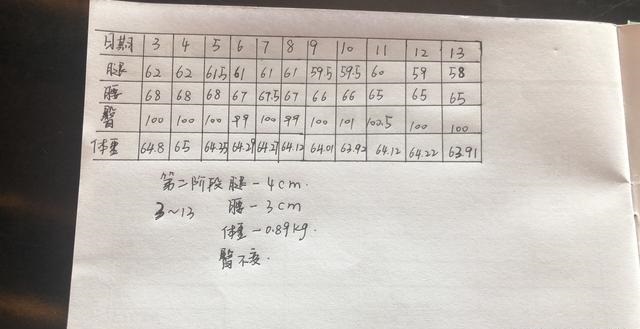 日期 3 4 5 6 7 8 9 10 11 12 13
腿 62 62 61.5 61 61 61 59.5 59.5 60 59 58
腰 68 68 68 67 67.5 67 66 66 65 65 65
臀 100 100 100 99 100 99 100 101 100.5 100 100
体重 64.8 65 64.35 64.29 64.27 64.12 64.01 63.92 64.12 64.22 63.91
第二阶段 腿 -4cm.
3~13 腰 -3cm
体重 -0.89kg.
臀不变.